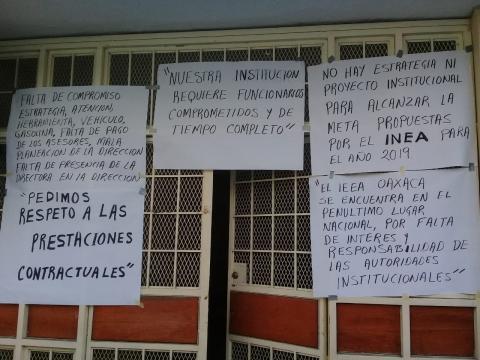 FALTA DE COMPROMISO
ESTRATEGIA, ATENCION,
HERRAMIENTA, VEHICULO,
GASOLINA, FALTA DE PAGO
DE LOS ASESORES, MALA
PLANEACION DE LA DIRECCION
FALTA DE PRESENCIA DE LA
DIRECTORA EN LA DIRECCION
"PEDIMOS
RESPETO A LAS
PRESTACIONES
CONTRACTUALES"
"NUESTRA INSTITUCION
REQUIERE FUNCIONARIOS
COMPROMETIDOS Y DE
TIEMPO COMPLETO"
NO HAY ESTRATEGIA NI
PROYECTO INSTITUCIONAL
PARA ALCANZAR LA
META PROPUESTAS
POR EL INEA PARA
EL AÑO 2019.
"EL IEEA OAXACA
SE ENCUENTRA EN EL
PENULTIMO LUGAR
NACIONAL, POR FALTA
DE INTERES Y
RESPONSABILIDAD DE
LAS AUTORIDADES
INSTITUCIONALES"